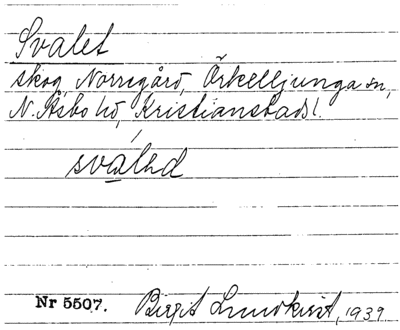 Svalet
skog, Norregård, Örkelljunga sn,
N. Åsbo hd, Kristianstads l.
Nr 5507. Birgit Lundkvist, 1939